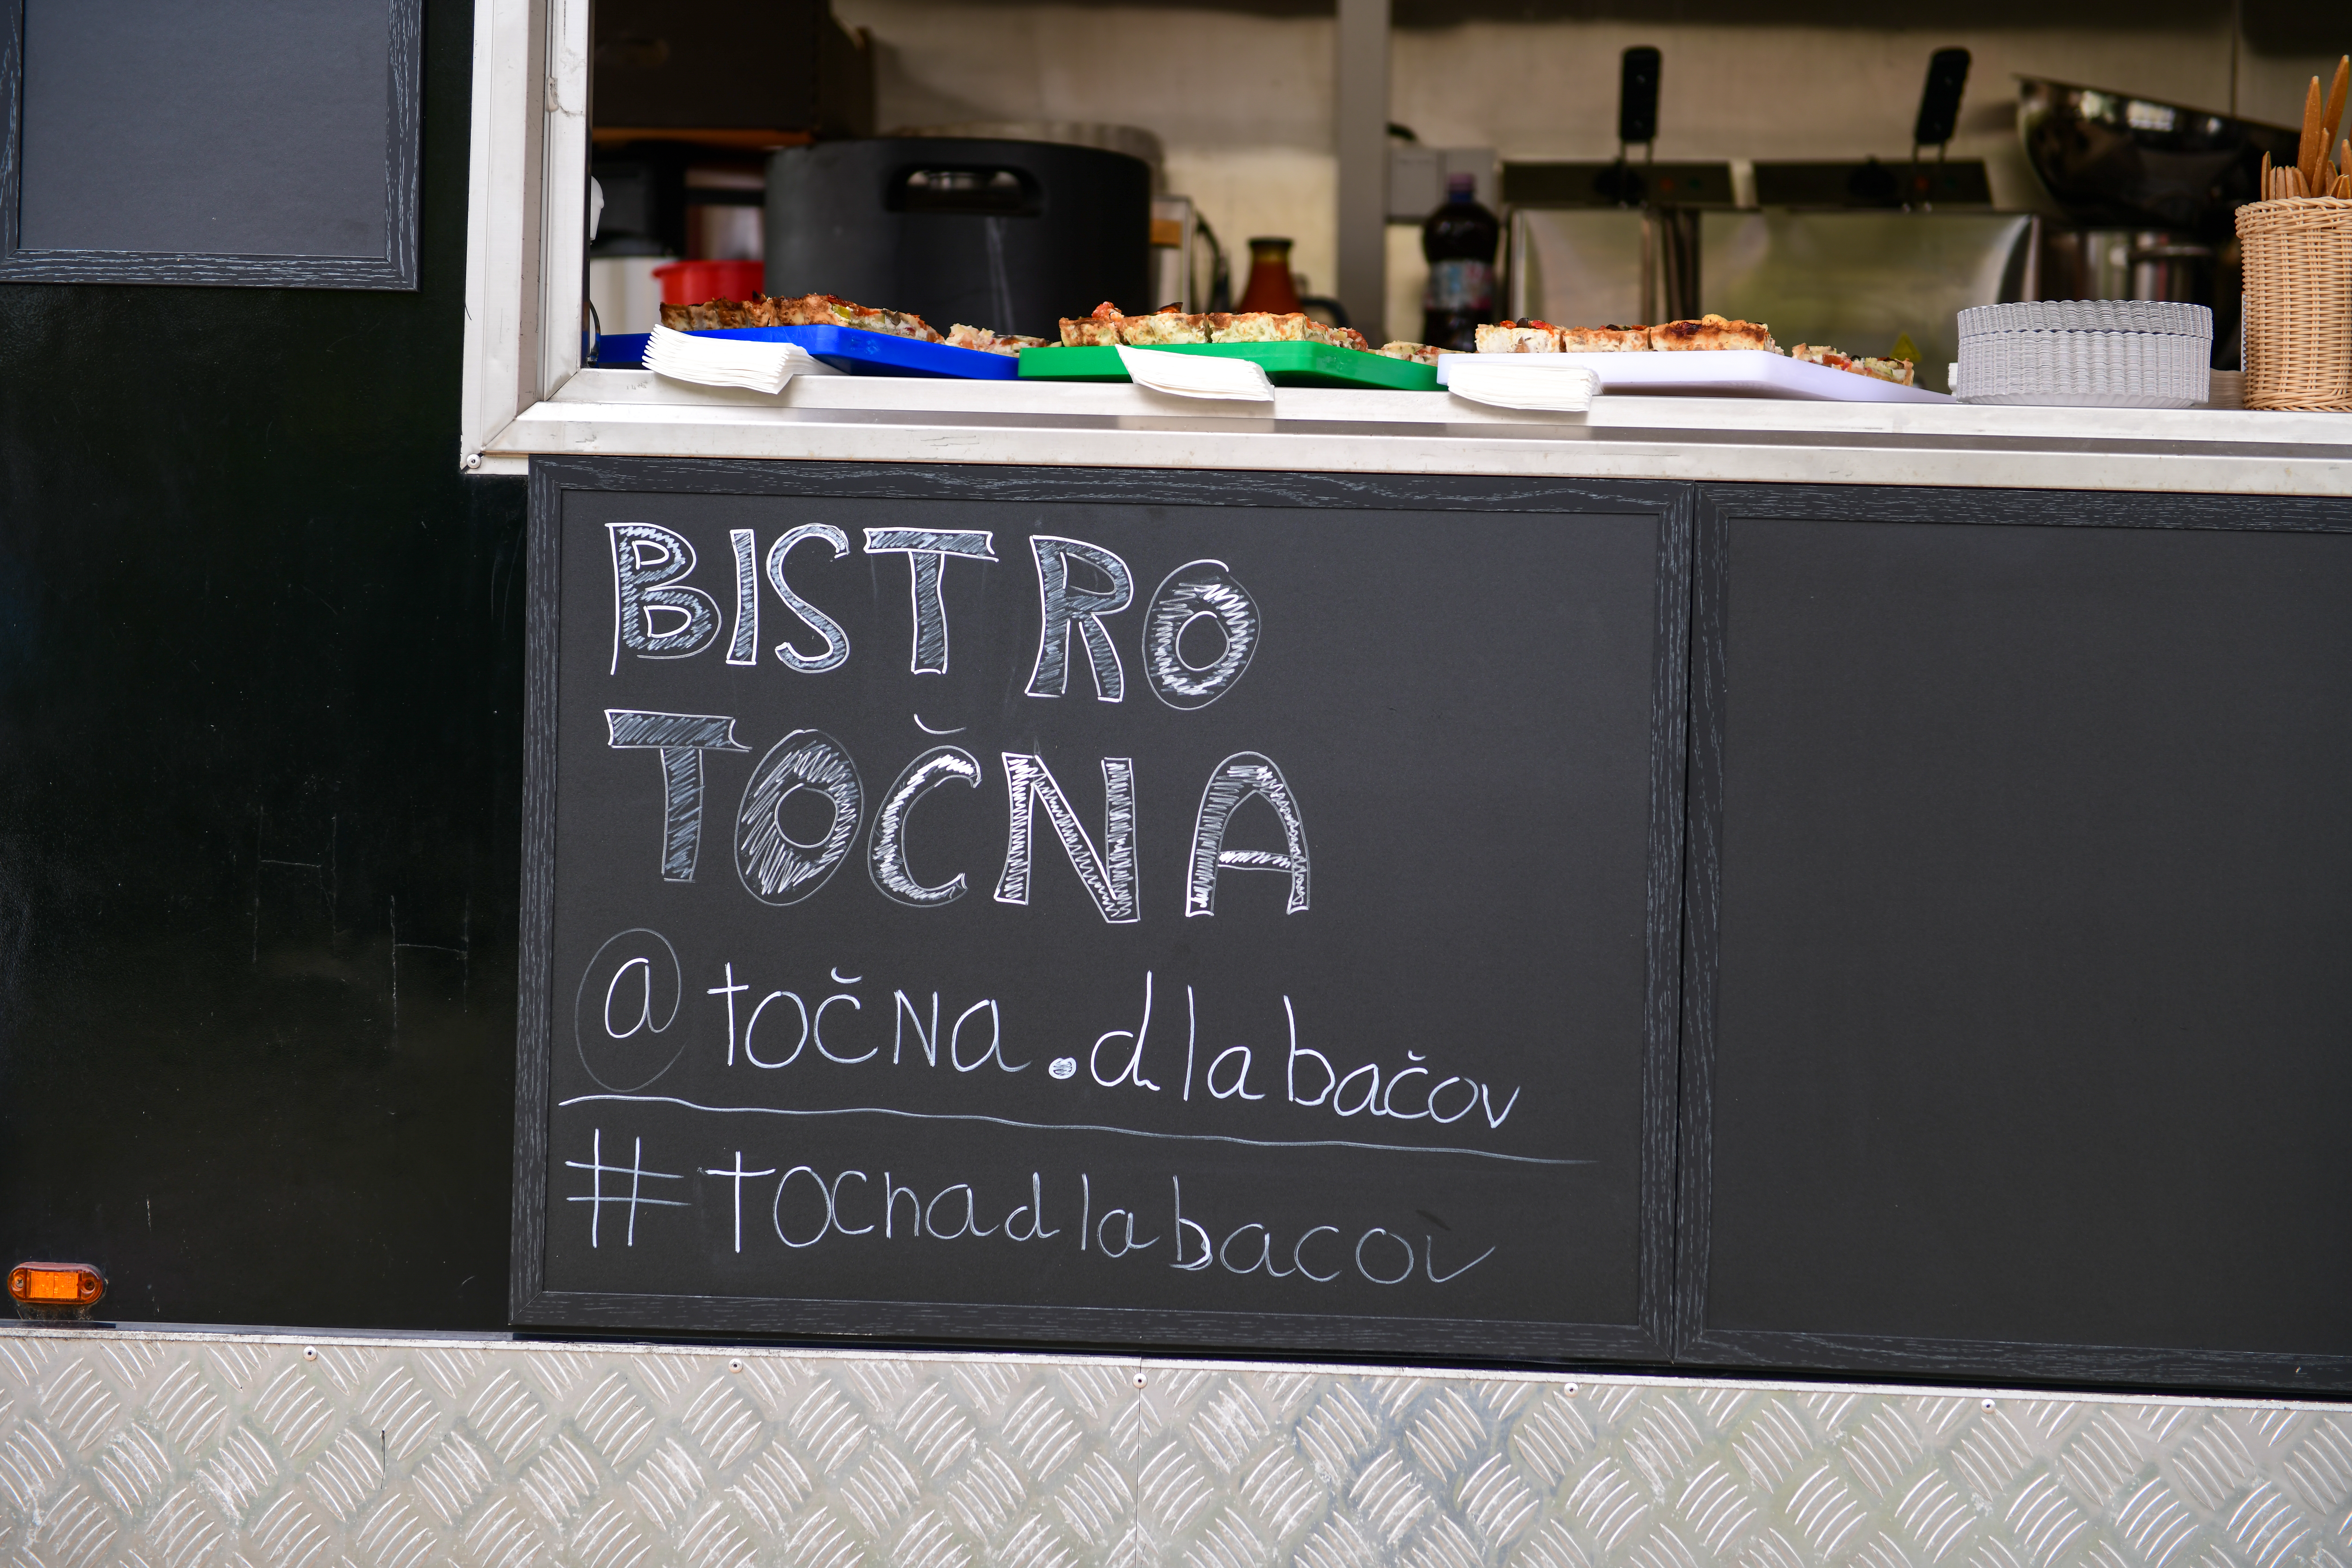 BISTRO
TOČNA
@točna.dlabačov
#tocnadlabacov